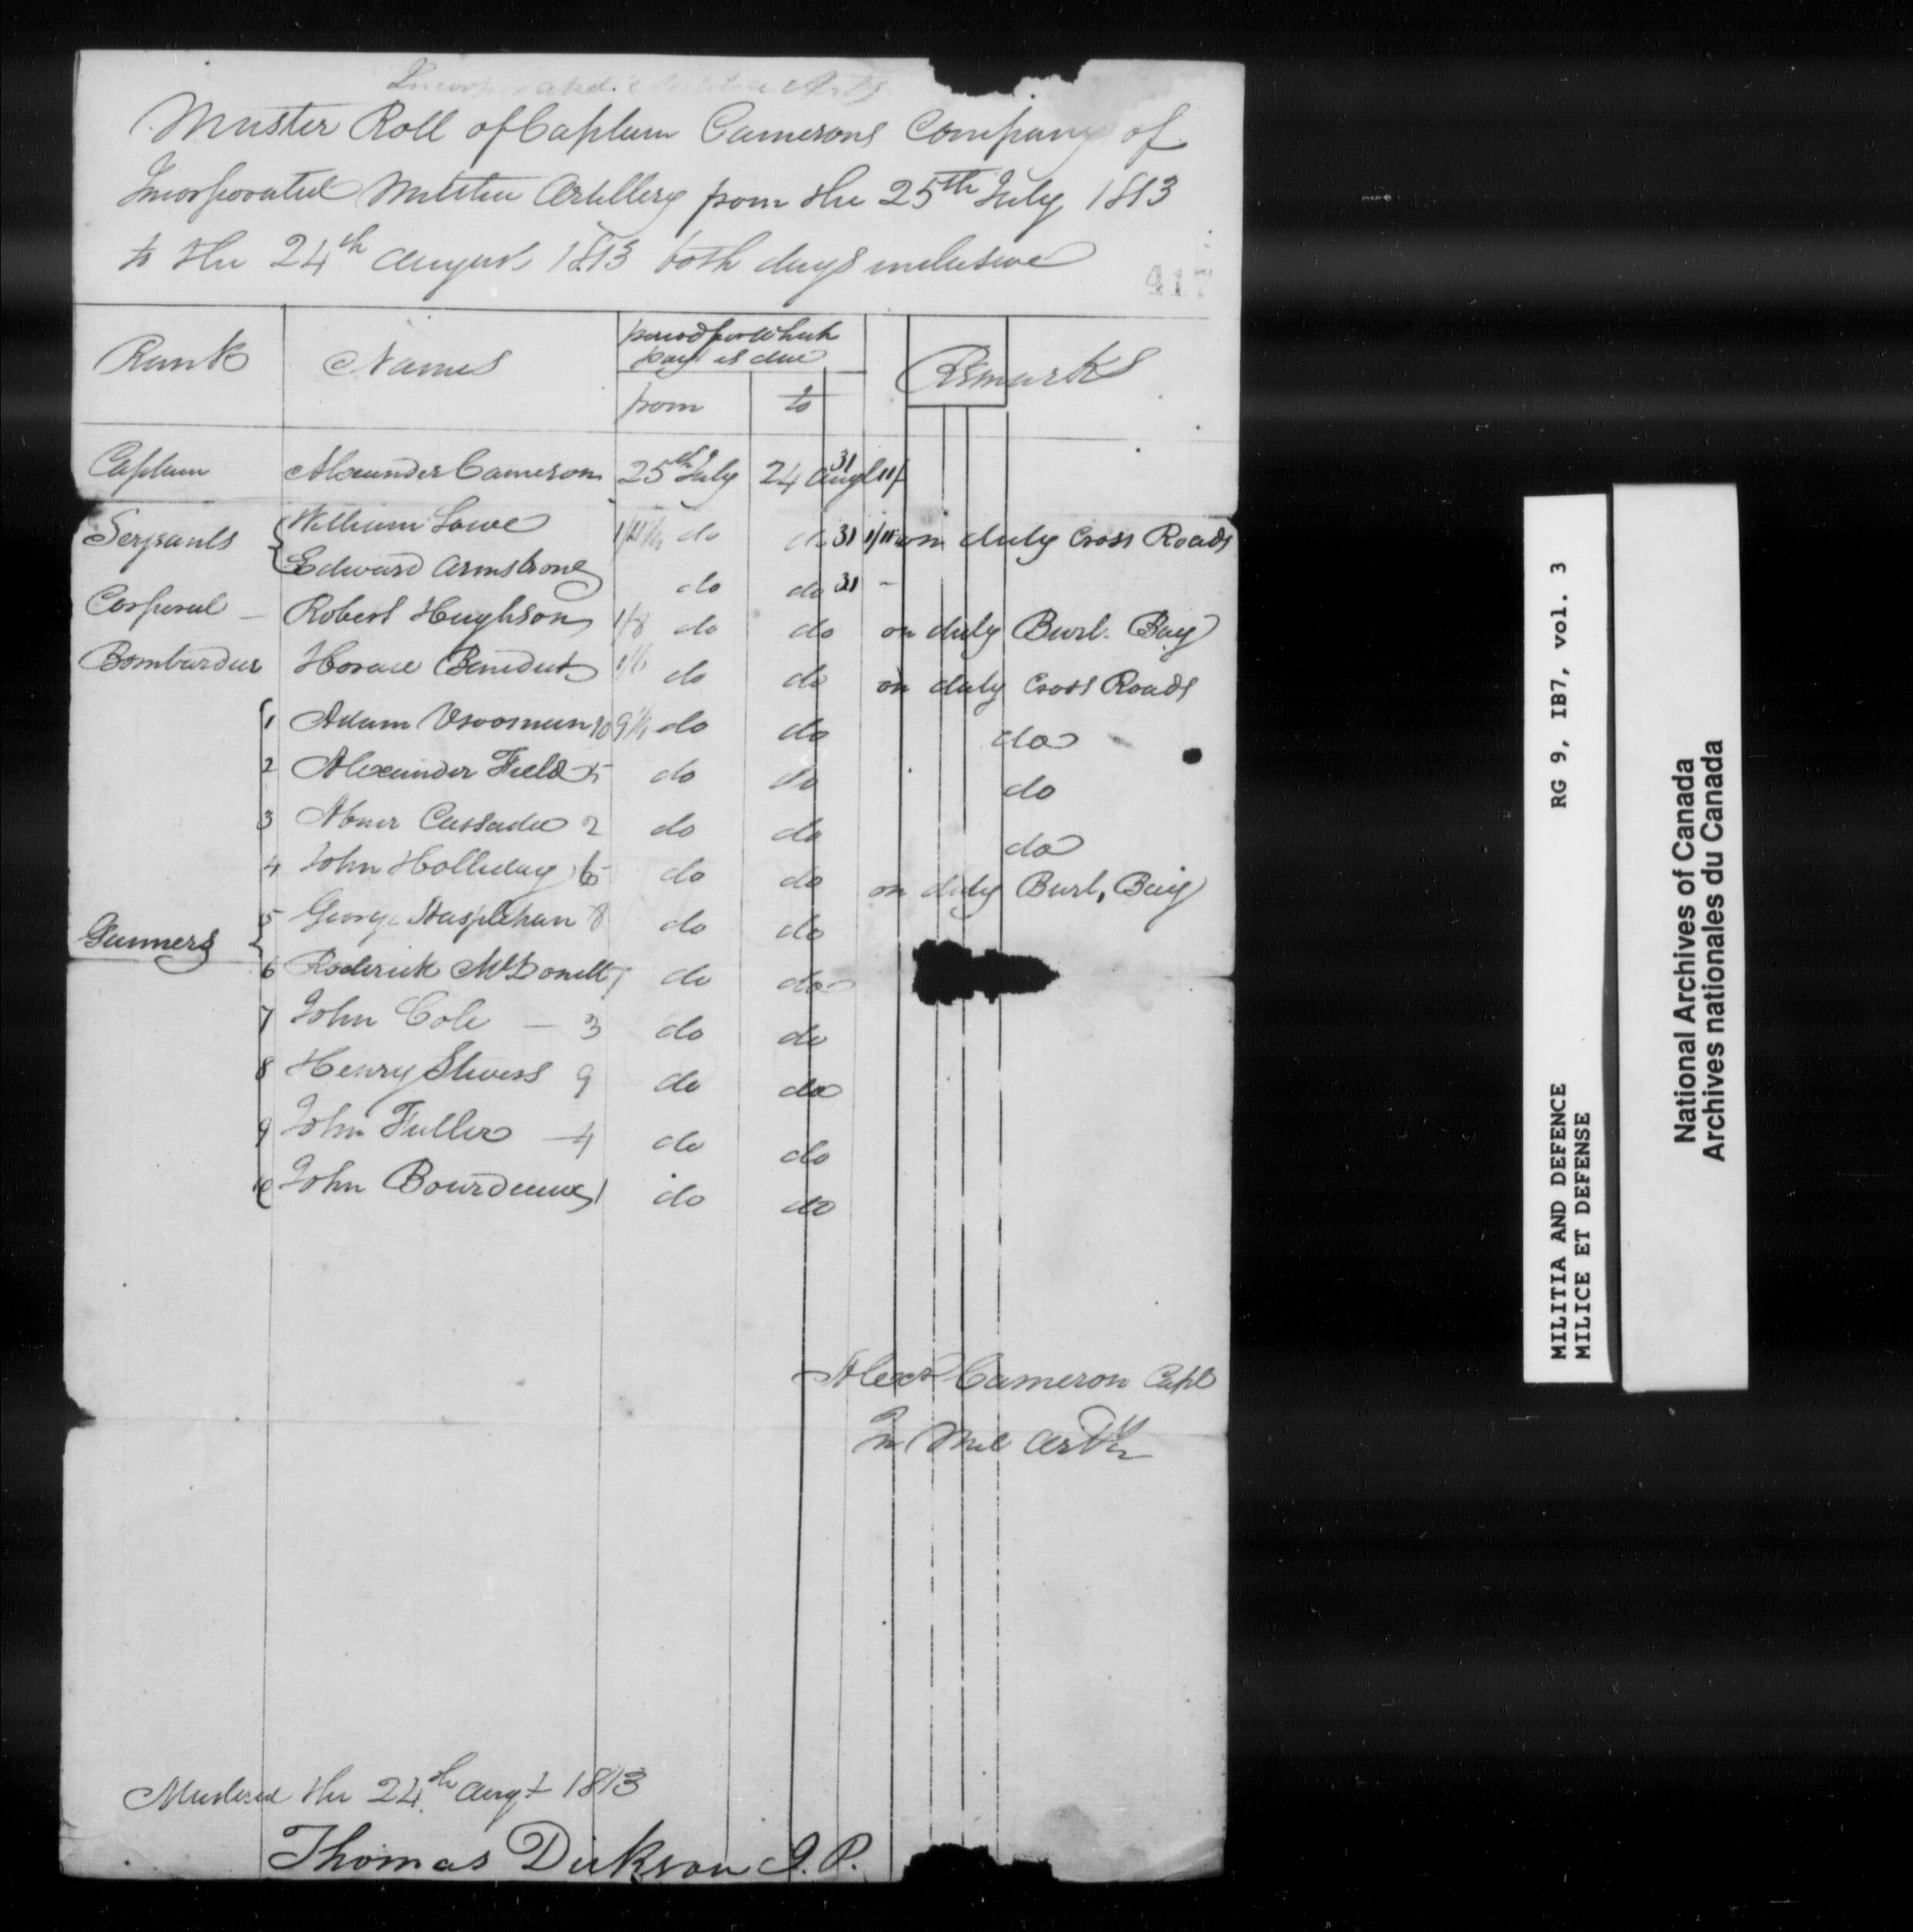 Incorporated Militia Arty
Muster Roll of Captain Camerons Company of
Incorporated Militia Artillery from the 25th July 1813
to the 24th August 1813 both days inclusive
417
Rank Names period for which Remarks
pay is due
from to
Captain Alexander Cameron 25th July 24 Augt 31
Serjeants William Lowe do do 31 on duty Cross Roads
Edward Armstrong do do 31 -
Corporal - Robert Hughson 1/8 do do on duty Burl. Bay
Bombardier Horace Benedict do do on duty Cross Roads
1 Adam Vrooman 10 do do do
2 Alexander Field 5 do do do
3 Abner Cassada 2 do do do
4 John Holliday 6 do do on duty Burl, Bay
Gunners 5 George 8 do do
6 Roderick McDonell 7 do do
7 John Cole - 3 do do
8 Henry 9 do do
9 John Fuller - 4 do do
10 John Bourdeaux 1 do do
Alexr Cameron Capt
In Mil Arty
Mustered the 24th Augt 1813
Thomas Dickson J.P.
MILITIA AND DEFENCE RG 9, IB7, vol. 3
MILICE ET DEFENSE
National Archives of Canada
Archives nationales du Canada